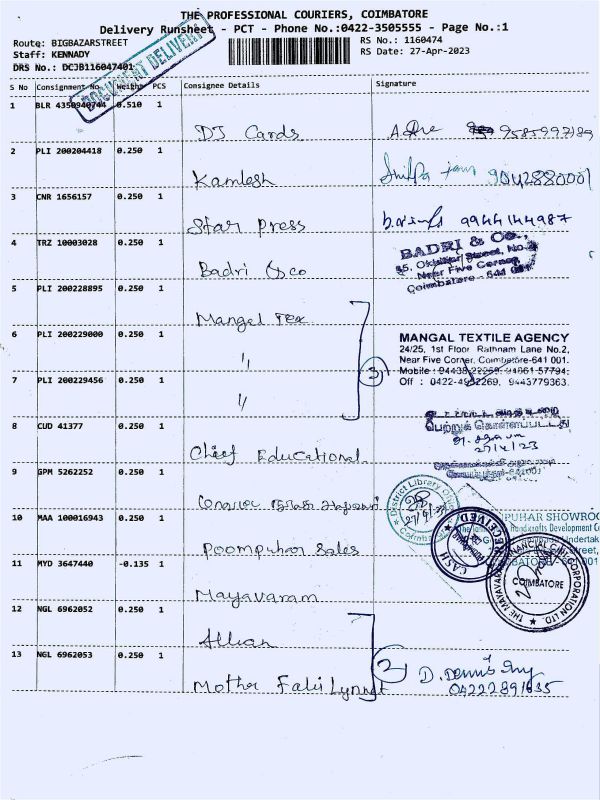 THE PROFESSIONAL COURIERS, COIMBATORE
Delivery Runsheet - PCT - Phone No.:0422-3505555 - Page No.:1
Route: BIGBAZARSTREET
Staff: KENNADY
DRS No.: DCJB116047401
RS No.: 1160474
RS Date: 27-Apr-2023
DOCUMENT DELIVERY
S No Consignment No. Weight PCS Consignee Details Signature
1 BLR 4350940744 0.510 1
DJ Cards 9585997189
2 PLI 200204418 0.250 1
Kamlesh Shilpa jain 9042880001
3 CNR 1656157 0.250 1
Star Press 9944144987
4 TRZ 10003028 0.250 1
Badri & co
BADRI & Co.,
Near Five Corner
Coimbatore - 641 001.
5 PLI 200228895 0.250 1
Mangal Tex
6 PLI 200229000 0.250 1
"
7 PLI 200229456 0.250 1
"
3
MANGAL TEXTILE AGENCY
24/25, 1st Floor Rathnam Lane No.2,
Near Five Corner, Coimbatore-641 001.
Mobile : 94438 22269, 94861 57794,
Off : 0422-4952269, 9443779363.
8 CUD 41377 0.250 1
Chief Educational
பெற்றுக் கொள்ளப்பட்டது
27/4/23
9 GPM 5262252 0.250 1
District Library Office
Coimbatore
10 MAA 100016943 0.250 1
Poompuhar Sales
CASH RECEIVED
11 MYD 3647440 -0.135 1
Mayavaram
THE MAYAVARAM FINANCIAL CORPORATION LTD.
COIMBATORE
12 NGL 6962052 0.250 1
13 NGL 6962053 0.250 1
2
04222891635